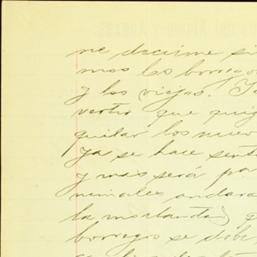 ne decirme si
mos los borrego
y los viejos. Ya
que
quitar los nuev
ya se hace sent
y mas será pa
nimales andara
la
borregos se debe